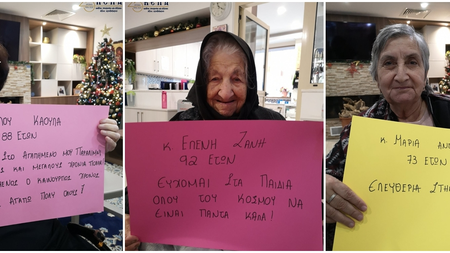 ΚΑΟΥΛΑ
88 ΕΤΩΝ
ΣΤΟ ΑΓΑΠΗΜΕΝΟ ΜΟΥ
ΚΑΙ ΜΕΓΑΛΟΥΣ ΧΡΟΝΙΑ
Ο ΚΑΙΝΟΥΡΓΙΟΣ ΧΡΟΝΟΣ
ΑΓΑΠΩ ΠΟΛΥ ΟΛΟΥΣ!
κ. ΕΛΕΝΗ ΖΑΝΗ
92 ΕΤΩΝ
ΕΥΧΟΜΑΙ ΣΤΑ ΠΑΙΔΙΑ
ΟΛΟΥ ΤΟΥ ΚΟΣΜΟΥ ΝΑ
ΕΙΝΑΙ ΠΑΝΤΑ ΚΑΛΑ!
κ. ΜΑΡΙΑ ΑΝ
73 ΕΤΩΝ
ΕΛΕΥΘΕΡΙΑ ΣΤΗ